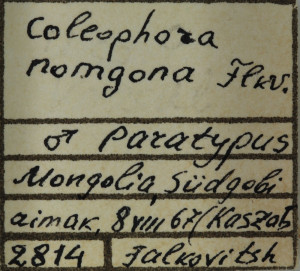 Coleophora
nomgona Flkv.
♂ Paratypus
Mongolia, Südgobi
aimak, 8 VIII 67 (Kaszab
2814 Falkovitsh